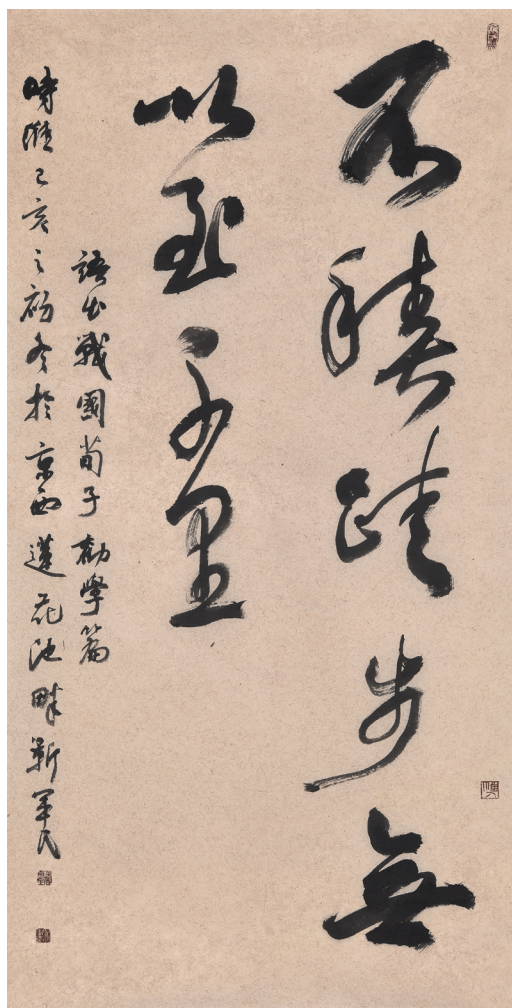 不積蹞步無
以至千里
語出戰國荀子勸學篇
時維己亥之初冬於京西蓮花池畔靳軍民